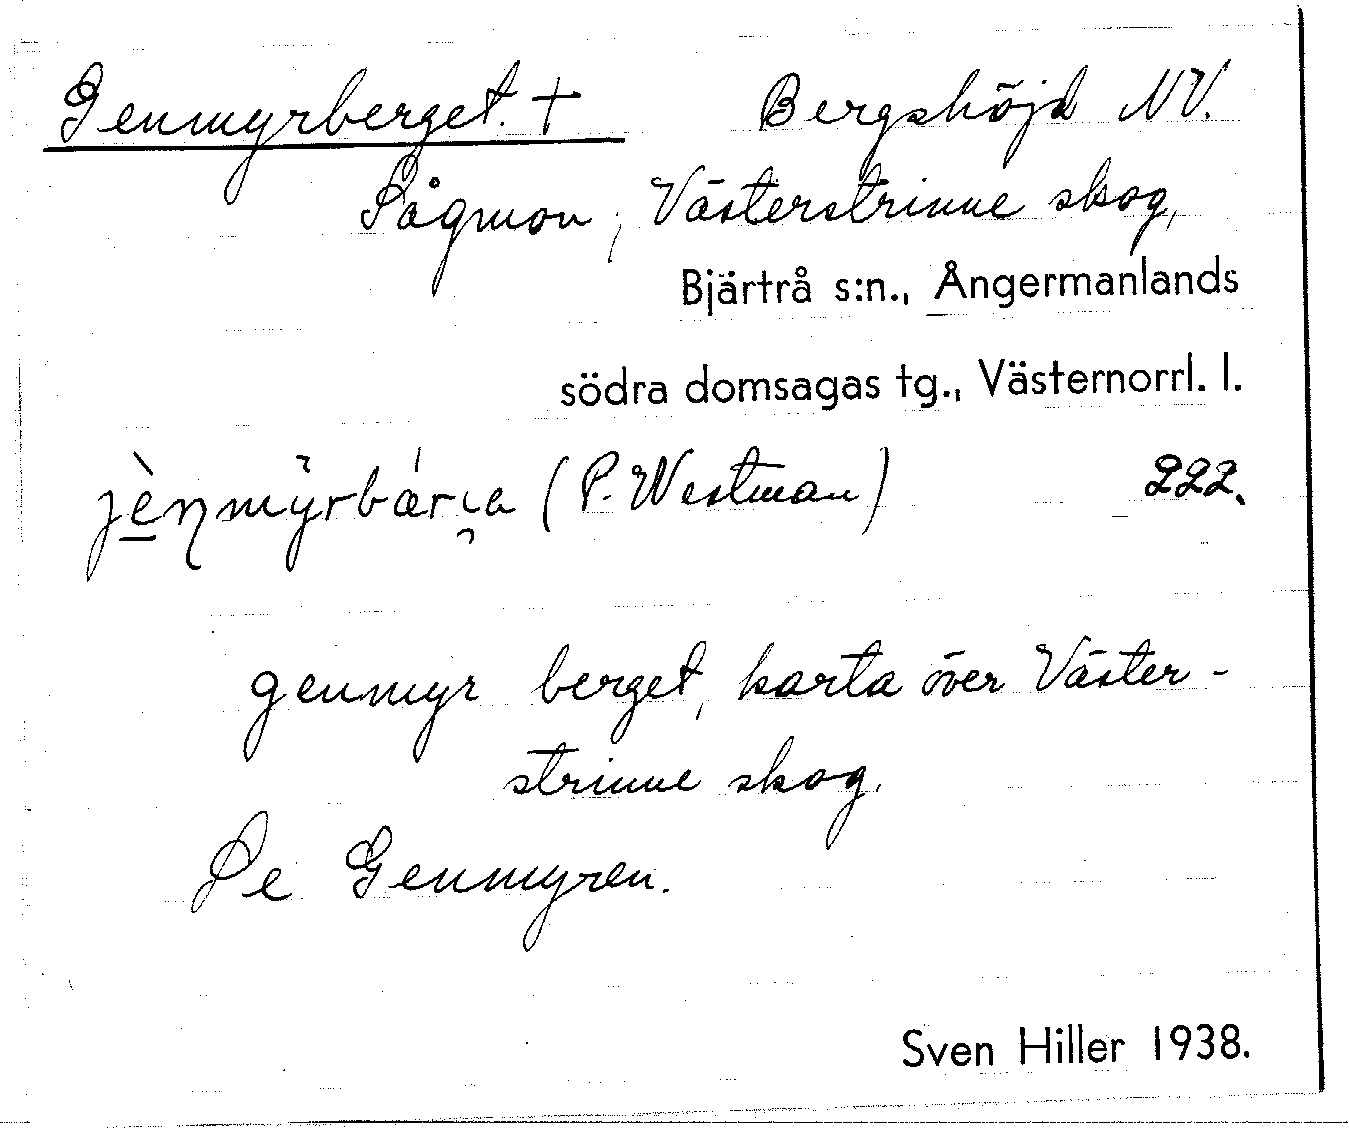 Genmyrberget. + Bergshöjd NV.
Sågmon, Västerstrinne skog,
Bjärtrå s:n., Ångermanlands
södra domsagas tg., Västernorrl. l.
(P. Westman) 222.
genmyr berget, karta över Väster-
strinne skog.
Se Genmyren.
Sven Hiller 1938.